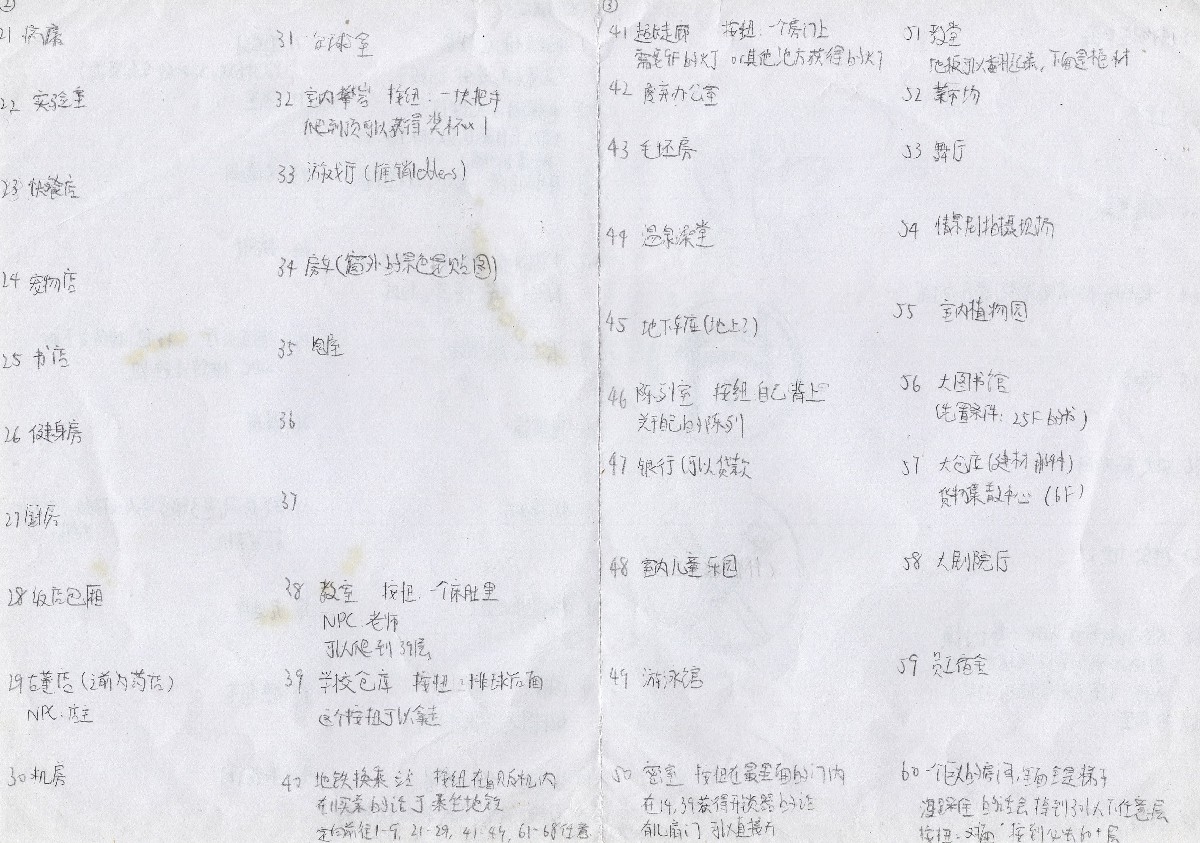 ②
21 病房
22 实验室
23 快餐店
24 宠物店
25 书店
26 健身房
27 厨房
28 饭店包厢
29 古董店(之前为药店)
NPC.店主
30 机房
31 台球室
32 室内攀岩 按钮:一块把手
爬到顶可以获得奖杯x1
33 游戏厅(推销lobbers)
34 房车(窗外的景色是贴图)
35 鬼屋
36
37
38 教室 按钮:一个床肚里
NPC.老师
可以爬到39层。
39 学校仓库 按钮:排球后面
这个按钮可以拿走
40 地铁换乘站 按钮在自贩机内
在购买的话了乘坐地铁
定向前往1-9, 21-29, 41-49, 61-68任意
③
41 超长走廊 按钮:一个房门上
需是9F的灯 or其他地方获得的灯
42 废弃办公室
43 毛坯房
44 温泉澡堂
45 地下车库(地上?)
46 陈列室 按钮自己背上
关于自己的陈列
47 银行(可以贷款
48 室内儿童乐园
49 游泳馆
50 密室 按钮在最里面的门内
在19,39获得开锁器的话
有几扇门可以直接开
51 教堂
地板可以翻起来,下面是棺材
52 菜市场
53 舞厅
54 情景剧拍摄现场
55 室内植物园
56 大图书馆
(先置条件:25F的书)
57 大仓库(建材 附件)
货物集散中心(6F)
58 大剧院厅
59 员工宿舍
60 一个巨大的房间,里面全是梯子
没踩住的话会掉到30以下任意层